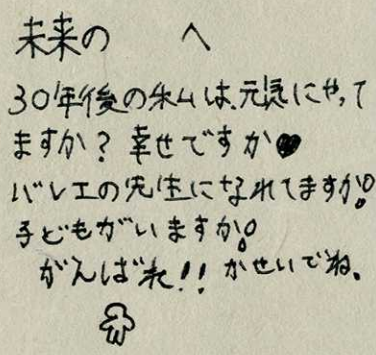 未来の　　へ
30年後の私は、元気にやって
ますか？幸せですか♥
バレエの先生になれてますか！
子どもがいますか！
がんばれ！！かせいでね。